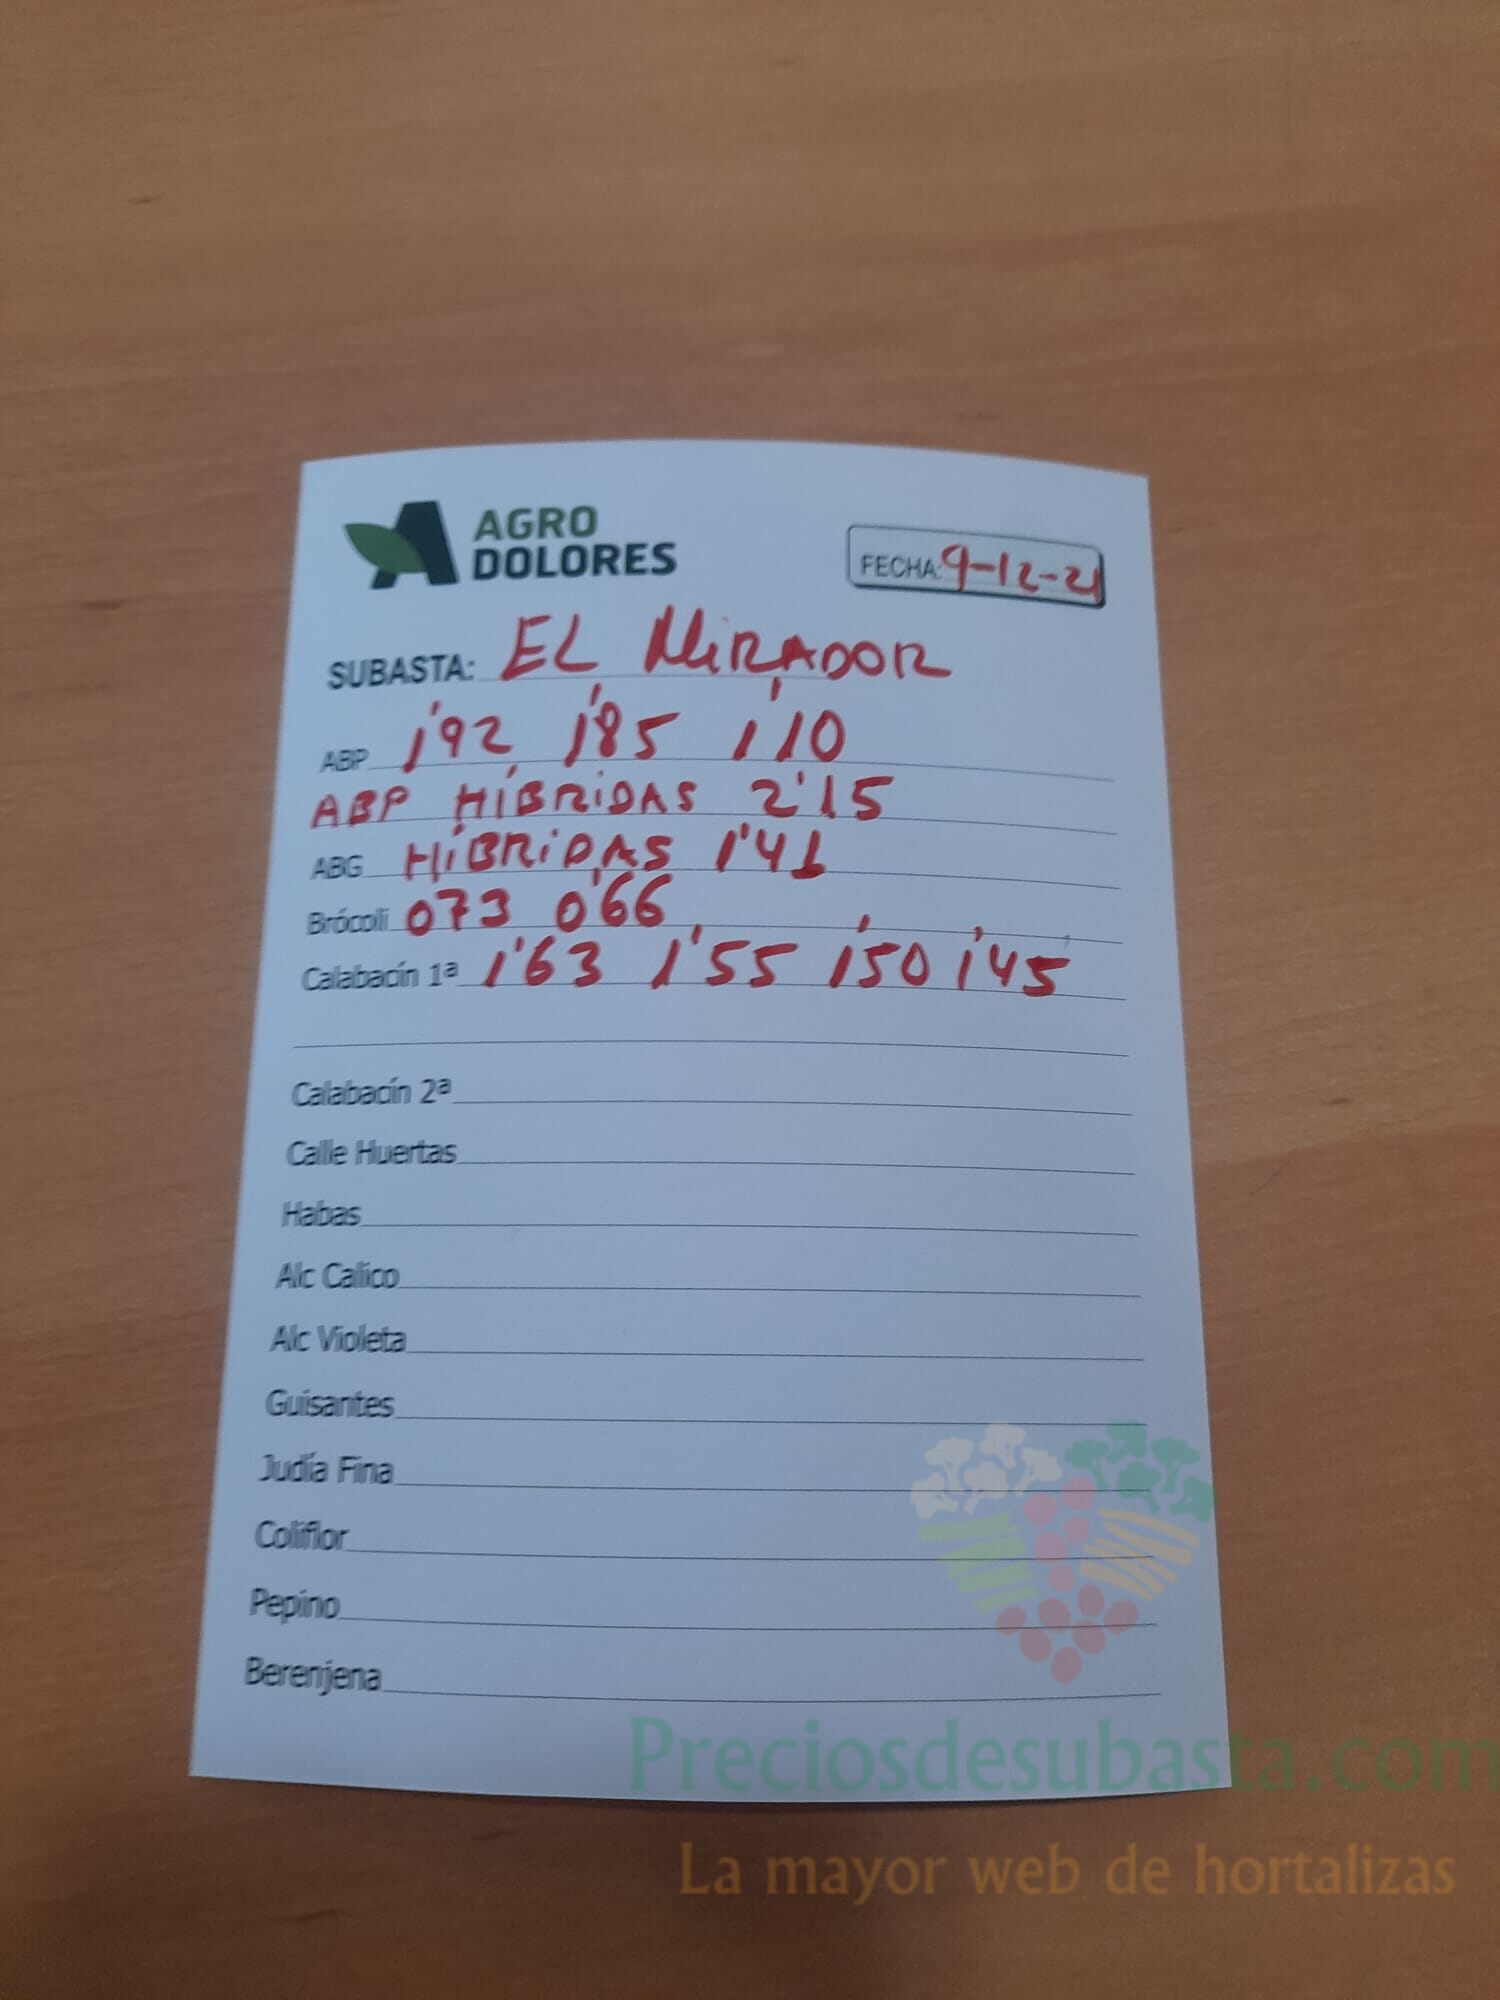 AGRO
DOLORES
FECHA: 9-12-21
SUBASTA: EL MIRADOR
ABP 1'92 1'85 1'10
ABP HÍBRIDAS 2'15
ABG HÍBRIDAS 1'41
Brócoli 0'73 0'66
Calabacín 1ª 1'63 1'55 1'50 1'45
Calabacín 2ª
Calle Huertas
Habas
Alc Calico
Alc Violeta
Guisantes
Judía Fina
Coliflor
Pepino
Berenjena
Preciosdesubasta.com
La mayor web de hortalizas